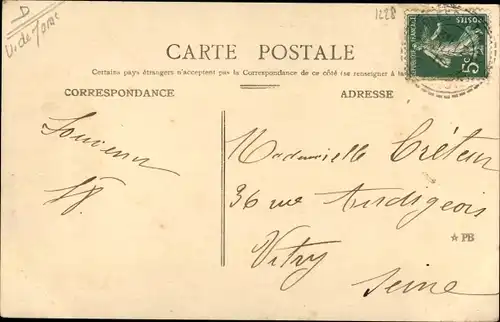 D
1228
CARTE POSTALE
Certains pays étrangers n'acceptent pas la Correspondance de ce côté (se renseigner à la
CORRESPONDANCE
ADRESSE
POSTES
5c
Souvenir
Mademoiselle Crétein
36 rue Audigeois
Vitry
Seine
★ PB